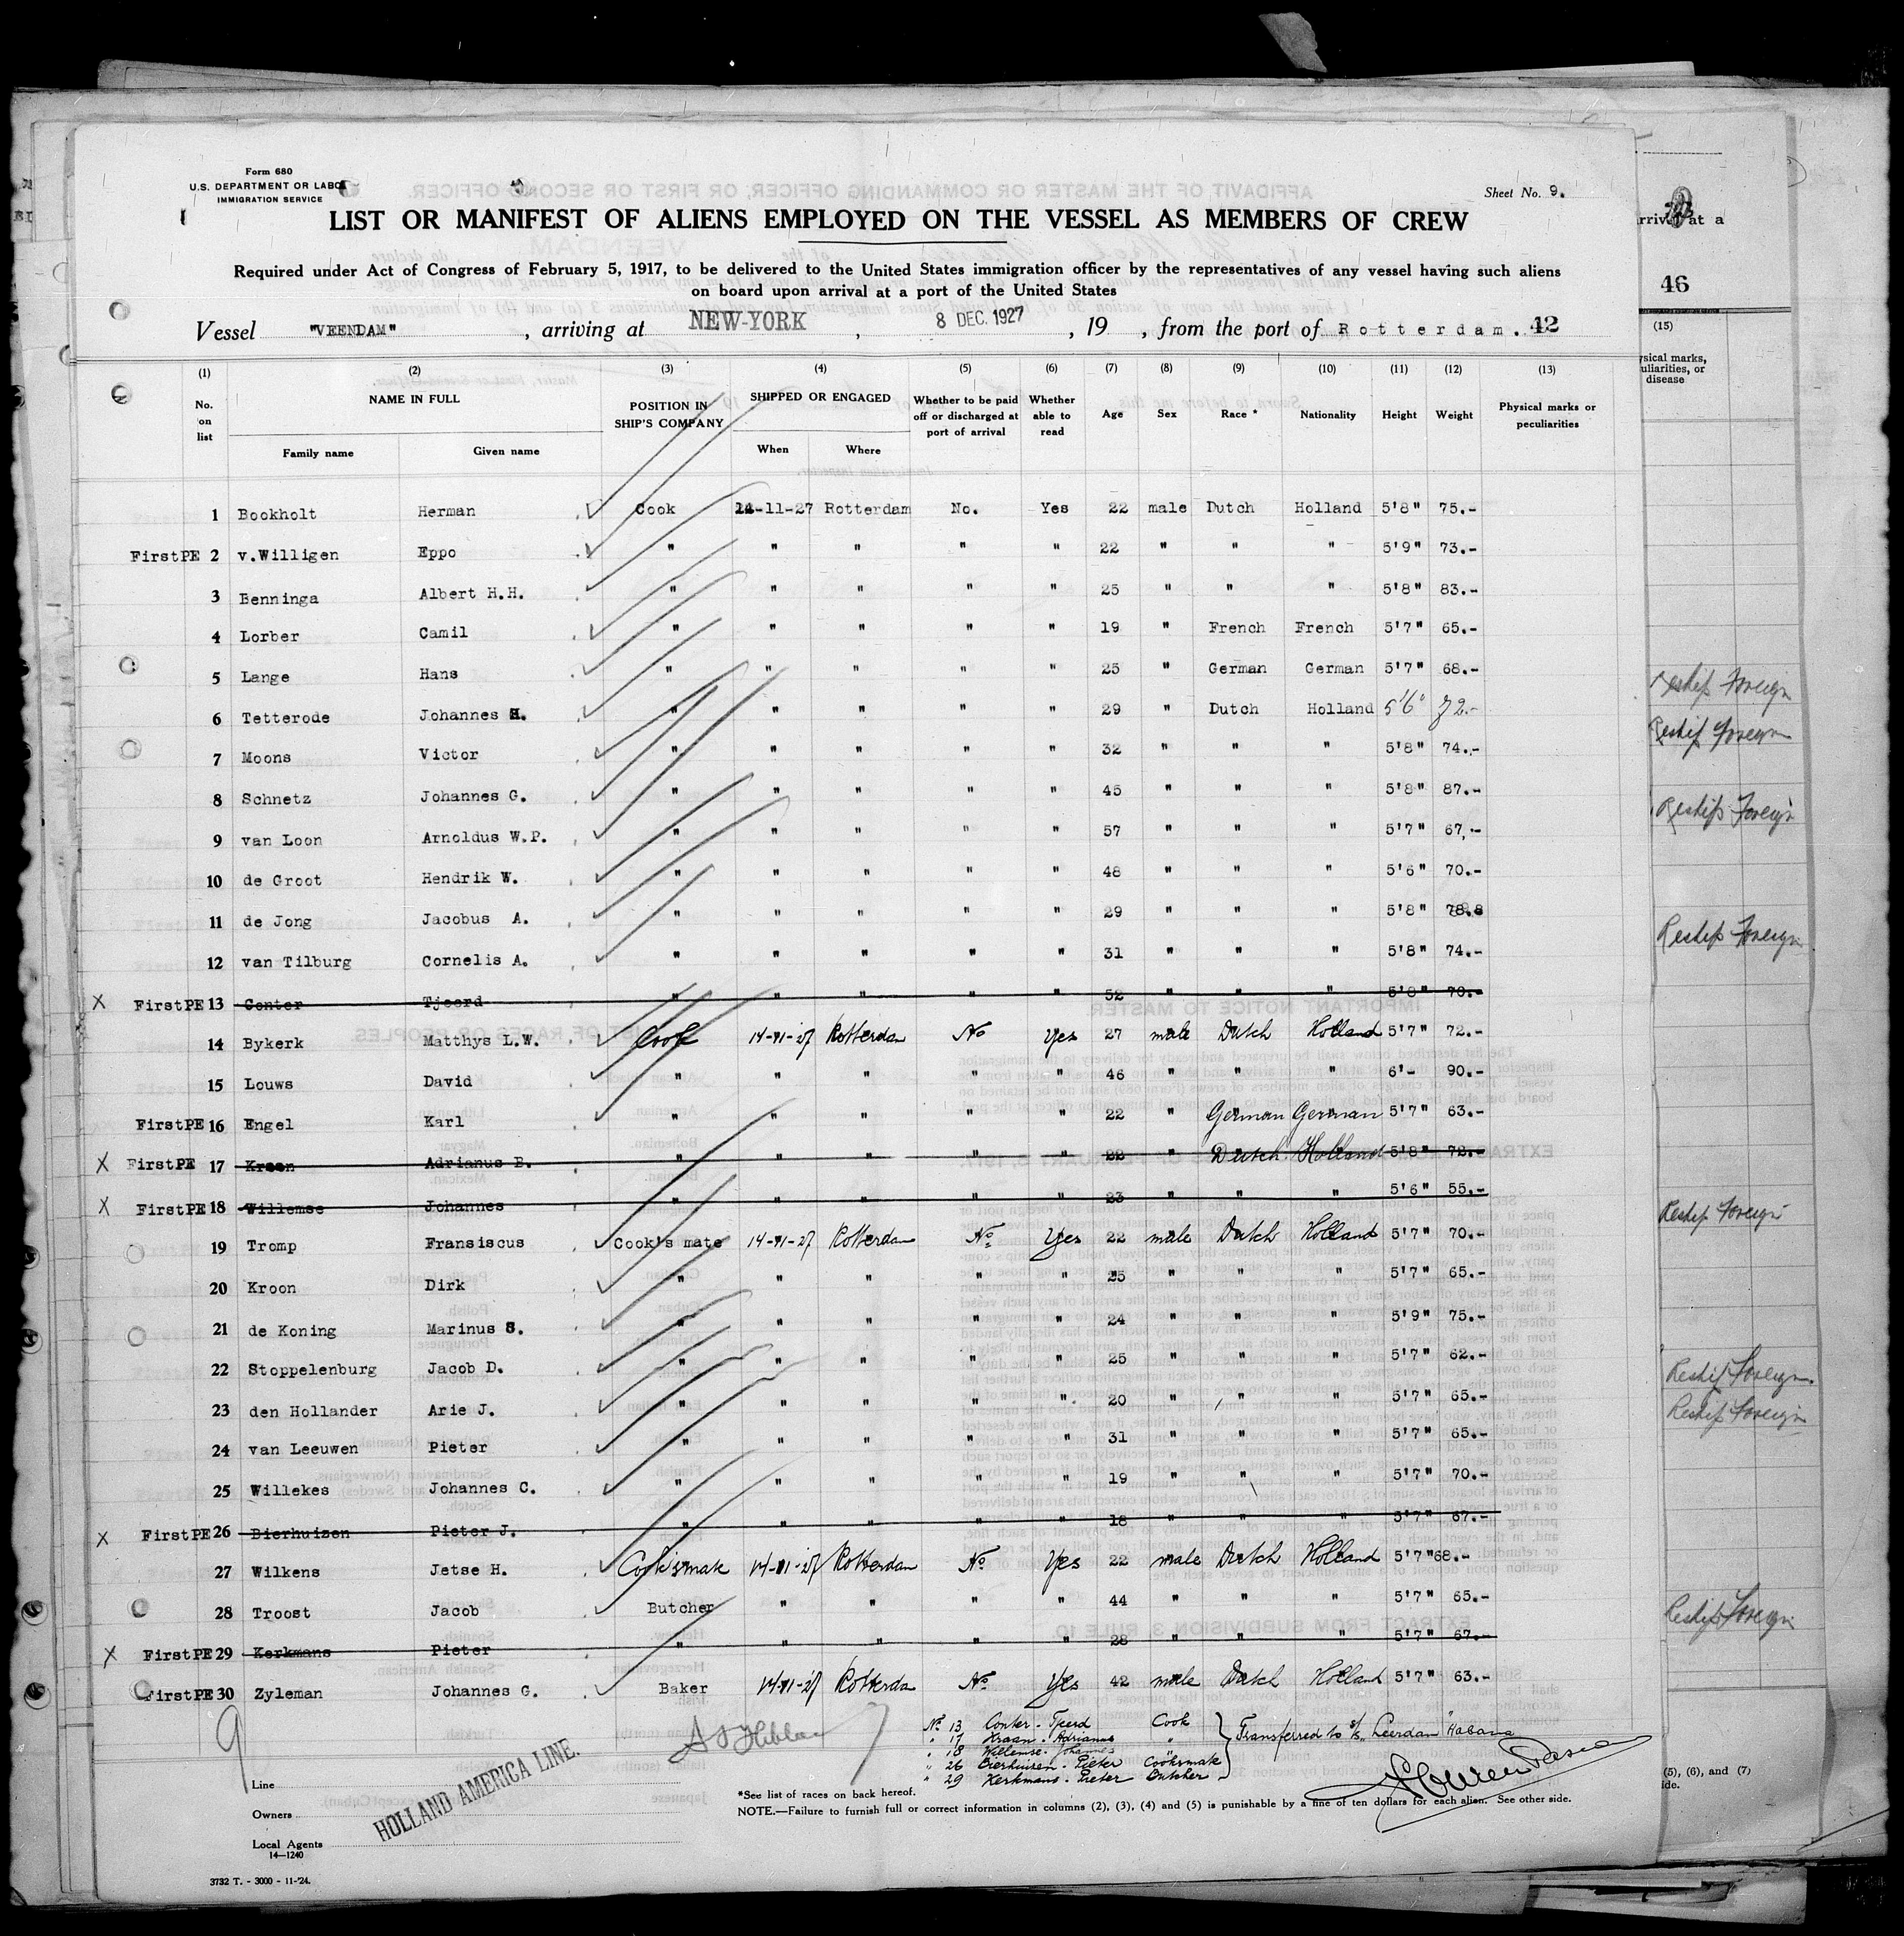 Form 680
U.S. DEPARTMENT OR LABOR
IMMIGRATION SERVICE
Sheet No. 9.
LIST OR MANIFEST OF ALIENS EMPLOYED ON THE VESSEL AS MEMBERS OF CREW
rrival at a
Required under Act of Congress of February 5, 1917, to be delivered to the United States immigration officer by the representatives of any vessel having such aliens
on board upon arrival at a port of the United States
46
Vessel "VEENDAM", arriving at NEW-YORK, 8 DEC. 1927, 19 , from the port of Rotterdam. 42
(1) (2) (3) (4) (5) (6) (7) (8) (9) (10) (11) (12) (13) (15)
No. on list NAME IN FULL Family name Given name POSITION IN SHIP'S COMPANY SHIPPED OR ENGAGED When Where Whether to be paid off or discharged at port of arrival Whether able to read Age Sex Race * Nationality Height Weight Physical marks or peculiarities
ysical marks,
uliarities, or
disease
1 Bookholt Herman Cook 14-11-27 Rotterdam No. Yes 22 male Dutch Holland 5'8" 75.-
FirstPE 2 v.Willigen Eppo " " " " " 22 " " " 5'9" 73.-
3 Benninga Albert H.H. " " " " " 25 " " " 5'8" 83.-
4 Lorber Camil " " " " " 19 " French French 5'7" 65.-
5 Lange Hans " " " " " 25 " German German 5'7" 68.- Reship Foreign
6 Tetterode Johannes H. " " " " " 29 " Dutch Holland 5'6" 72.- Reship Foreign
7 Moons Victor " " " " " 32 " " " 5'8" 74.-
8 Schnetz Johannes G. " " " " " 45 " " " 5'8" 87.- Reship Foreign
9 van Loon Arnoldus W.P. " " " " " 57 " " " 5'7" 67,-
10 de Groot Hendrik W. " " " " " 48 " " " 5'6" 70.-
11 de Jong Jacobus A. " " " " " 29 " " " 5'8" 78.8 Reship Foreign
12 van Tilburg Cornelis A. " " " " " 31 " " " 5'8" 74.-
X FirstPE 13 Conter Tjeerd " " " " " 52 " " " 5'8" 70.-
14 Bykerk Matthys L.W. Cook 14-11-27 Rotterdam No Yes 27 male Dutch Holland 5'7" 72.-
15 Louws David " " " " " 46 " " " 6'- 90.-
FirstPE 16 Engel Karl " " " " " 22 " German German 5'7" 63.-
X FirstPE 17 Kroon Adrianus B. " " " " " 22 " Dutch Holland 5'8" 72.-
X FirstPE 18 Willemse Johannes " " " " " 23 " " " 5'6" 55.- Reship Foreign
19 Tromp Fransiscus Cook's mate 14-11-27 Rotterdam No Yes 22 male Dutch Holland 5'7" 70.-
20 Kroon Dirk " " " " " 25 " " " 5'7" 65.-
21 de Koning Marinus S. " " " " " 24 " " " 5'9" 75.-
22 Stoppelenburg Jacob D. " " " " " 25 " " " 5'7" 62.- Reship Foreign
23 den Hollander Arie J. " " " " " 20 " " " 5'7" 65.- Reship Foreign
24 van Leeuwen Pieter " " " " " 31 " " " 5'7" 65.-
25 Willekes Johannes C. " " " " " 19 " " " 5'7" 70.-
X FirstPE 26 Bierhuizen Pieter J. " " " " " 18 " " " 5'7" 67.-
27 Wilkens Jetse H. Cook's mate 14-11-27 Rotterdam No Yes 22 male Dutch Holland 5'7" 68.-
28 Troost Jacob Butcher " " " " 44 " " " 5'7" 65.- Reship Foreign
X FirstPE 29 Kerkmans Pieter " " " " " 28 " " " 5'7" 67.-
FirstPE 30 Zyleman Johannes G. Baker 14-11-27 Rotterdam No Yes 42 male Dutch Holland 5'7" 63.-
9
No 13 Conter - Tjeerd Cook
" 17 Kraan - Adrianus "
" 18 Willemse - Johannes "
" 26 Bierhuisen - Pieter Cooksmate
" 29 Kerkmans - Pieter Butcher
Transferred to s/s "Leerdam" Habana
Line
Owners
Local Agents
HOLLAND AMERICA LINE.
14—1240
*See list of races on back hereof.
NOTE.—Failure to furnish full or correct information in columns (2), (3), (4) and (5) is punishable by a fine of ten dollars for each alien. See other side.
(5), (6), and (7)
ide.
3732 T. - 3000 - 11-'24.